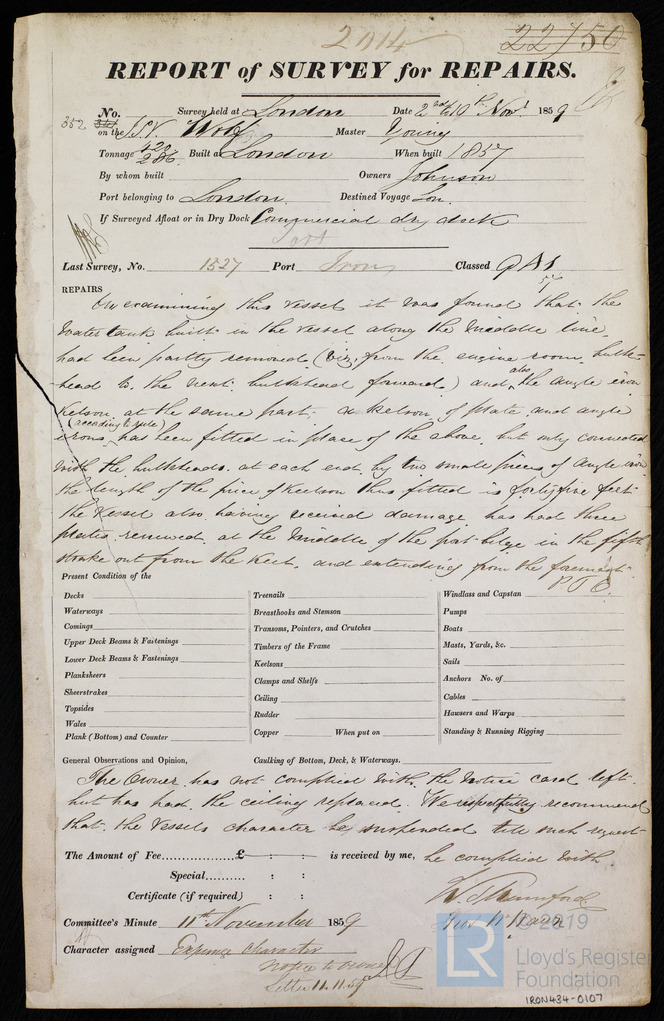 2014
22750
REPORT of SURVEY for REPAIRS.
No. Survey held at London Date 2nd to 10th Novr 1859
352 on the S.V. Wolf Master Young
Tonnage 420 286 Built at London When built 1857
By whom built Owners Johnson
Port belonging to London Destined Voyage Lon.
If Surveyed Afloat or in Dry Dock Commercial dry dock
Last Survey, No. 1527 Port Iron Classed 9 A1
REPAIRS
On examining this vessel it was found that the
water tank built in the vessel along the middle line
had been partly removed (viz. from the engine room bulk-
head to the next bulkhead forward) and also the angle iron
Kelson at the same part. a kelson of plate and angle
irons (according to rule) has been fitted in place of the above, but only connected
with the bulkheads at each end by two small pieces of angle iron
the length of the piece of keelson thus fitted is forty five feet
the vessel also having received damage has had three
plates renewed at the middle of the port bilge in the fifth
strake out from the keel, and extending from the foremast
P.T.O.
Present Condition of the
Decks Treenails Windlass and Capstan
Waterways Breasthooks and Stemson Pumps
Comings Transoms, Pointers, and Crutches Boats
Upper Deck Beams & Fastenings Timbers of the Frame Masts, Yards, &c.
Lower Deck Beams & Fastenings Keelsons Sails
Planksheers Clamps and Shelfs Anchors No. of
Sheerstrakes Ceiling Cables
Topsides Rudder Hawsers and Warps
Wales Copper When put on Standing & Running Rigging
Plank (Bottom) and Counter
General Observations and Opinion, Caulking of Bottom, Deck, & Waterways.
The Owner has not complied with the notice card left
but has had the ceiling replaced. We respectfully recommend
that the vessels character be suspended till such request
The Amount of Fee £ : : is received by me, be complied with
Special : :
Certificate (if required) : :
Committee's Minute 11th November 1859
Character assigned Expunge character
notice to owner
Letter 11.11.59
© 2019
LR
Lloyd's Register
Foundation
IRON434-0107